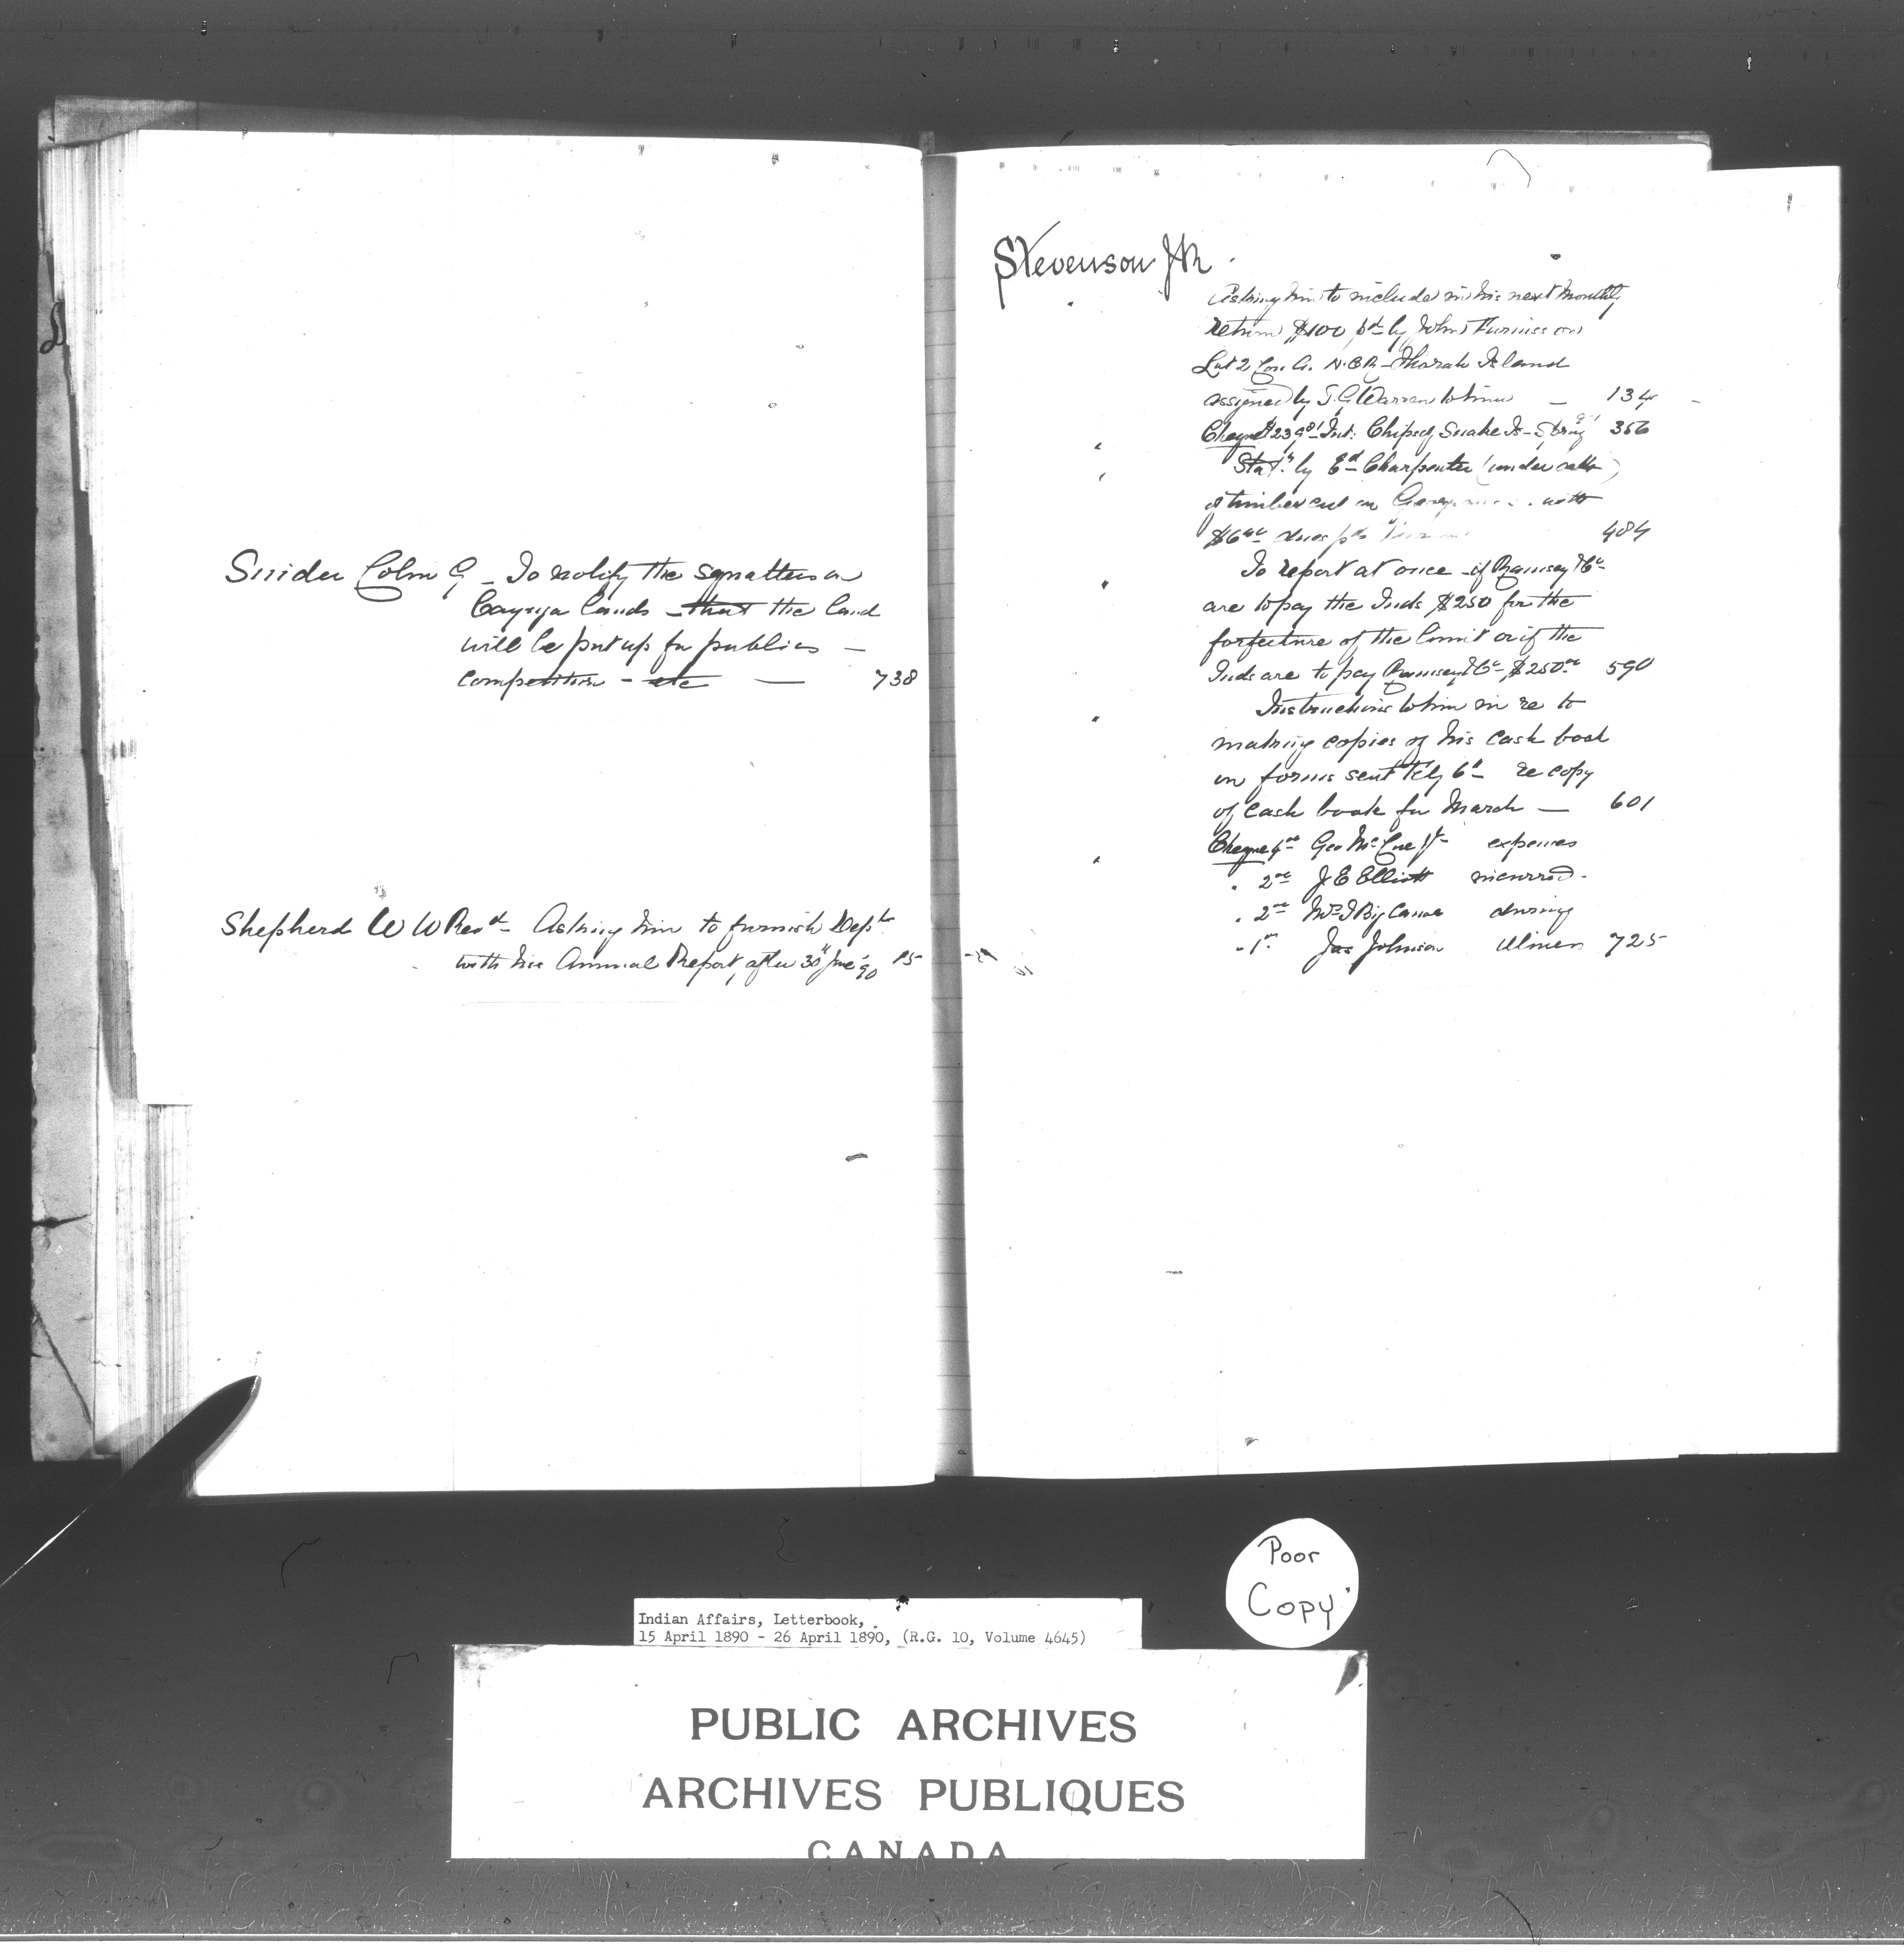 Snider Colin G - To notify the squatters on
Cayuga lands - that the land
will be put up for public -
competition - etc — 738
Shepherd W W Revd - Asking him to furnish Dept
with his Annual Report, after 30th June '90 15
Stevenson JR.
Asking him to include in his next monthly
return $100 pd by John Furniss on
Lot 2 Con. A. Thorah Island
assigned by J. G Warren to him — 134
Cheque $239.81 Int: Chips of Snake Is - 356
Statt by Ed Charpentier (under oath)
of timber cut on with
$6.00 dues 484
To report at once - if Ramsey & Co
are to pay the Inds $250 for the
forfeiture of the limit or if the
Inds are to pay Ramsey & Co $250.00 590
Instructions to him in re to
making copies of his cash book
on forms sent re copy
of cash book for March — 601
Cheque 4.00 Geo McCue Jr expenses
" 2.00 J E Elliott incurred -
" 2.00 Mrs J Big Canoe during
" 1.00 Jas Johnson illness 725
Poor
Copy
Indian Affairs, Letterbook,
15 April 1890 - 26 April 1890, (R.G. 10, Volume 4645)
PUBLIC ARCHIVES
ARCHIVES PUBLIQUES
CANADA